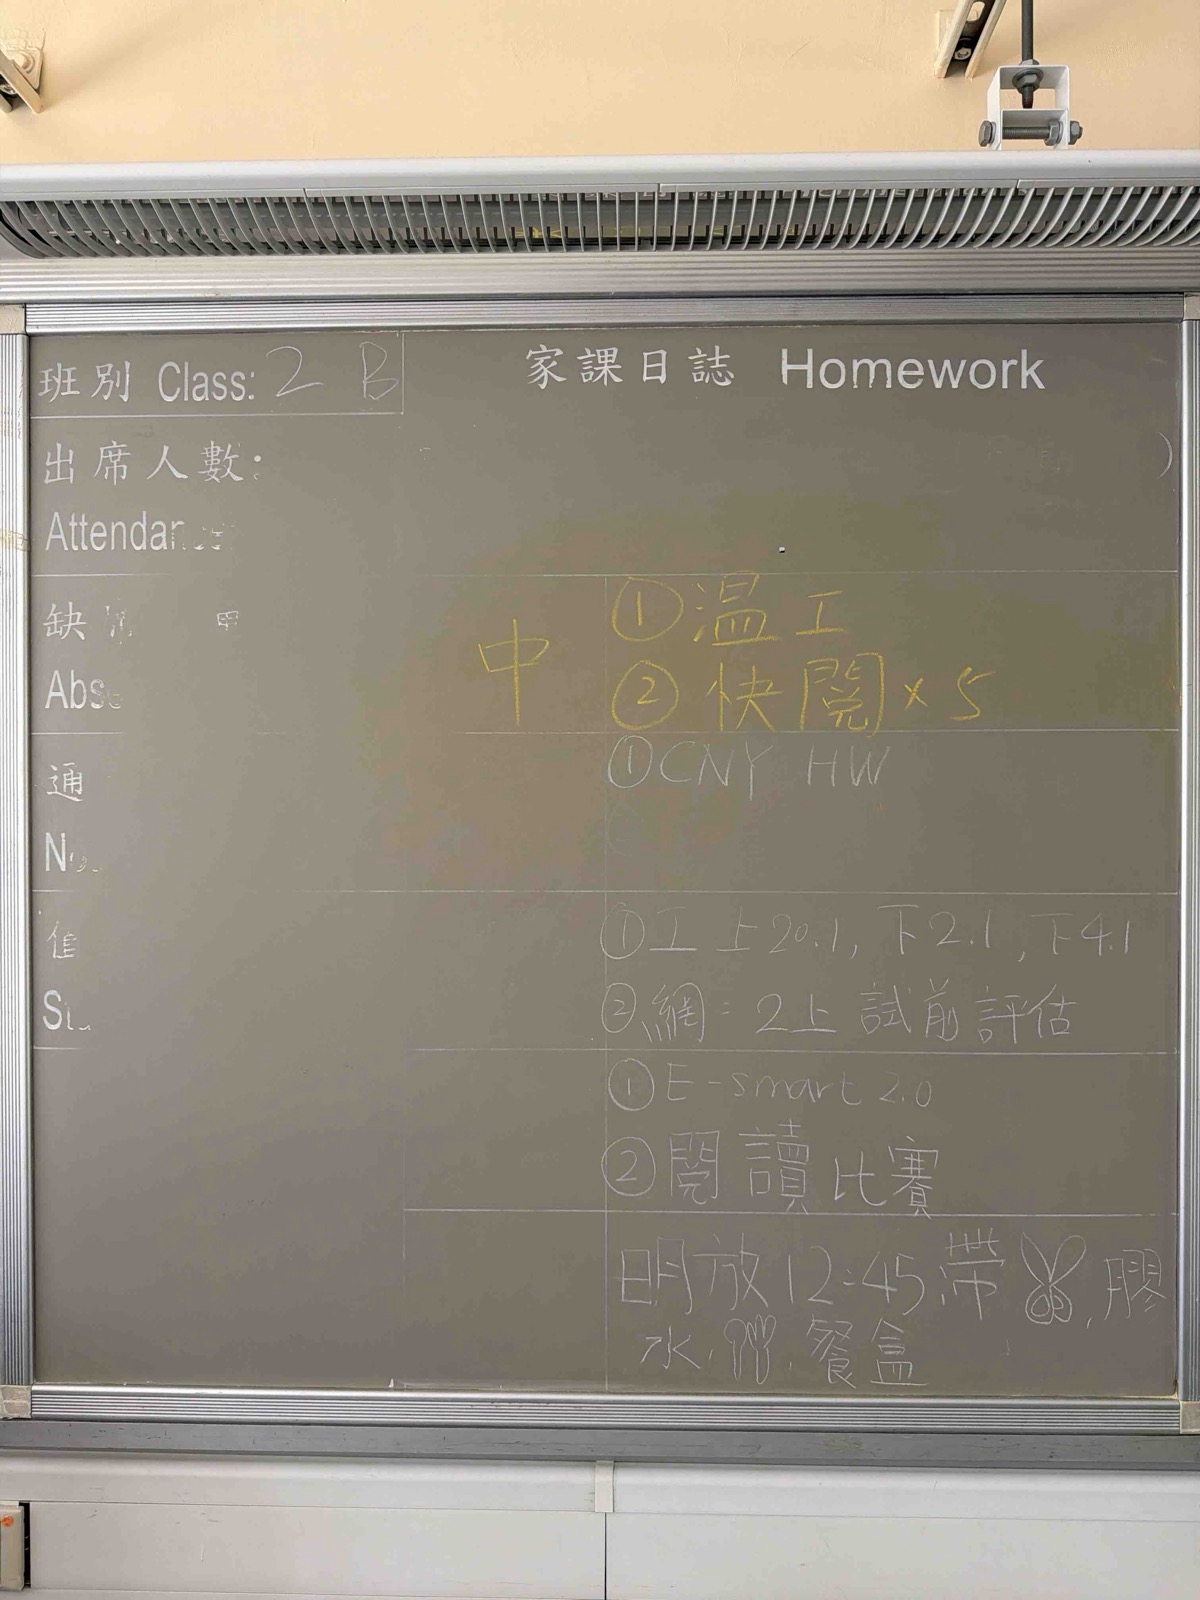 班別 Class: 2 B
家課日誌 Homework
出席人數:
Attendan
缺席
Abs
中
①温工
②快閱×5
通
①CNY HW
①工上20.1, 下2.1, 下4.1
②網:2上試前評估
①E-smart 2.0
②閱讀比賽
明放12:45 滯 , 膠
水, , 餐盒